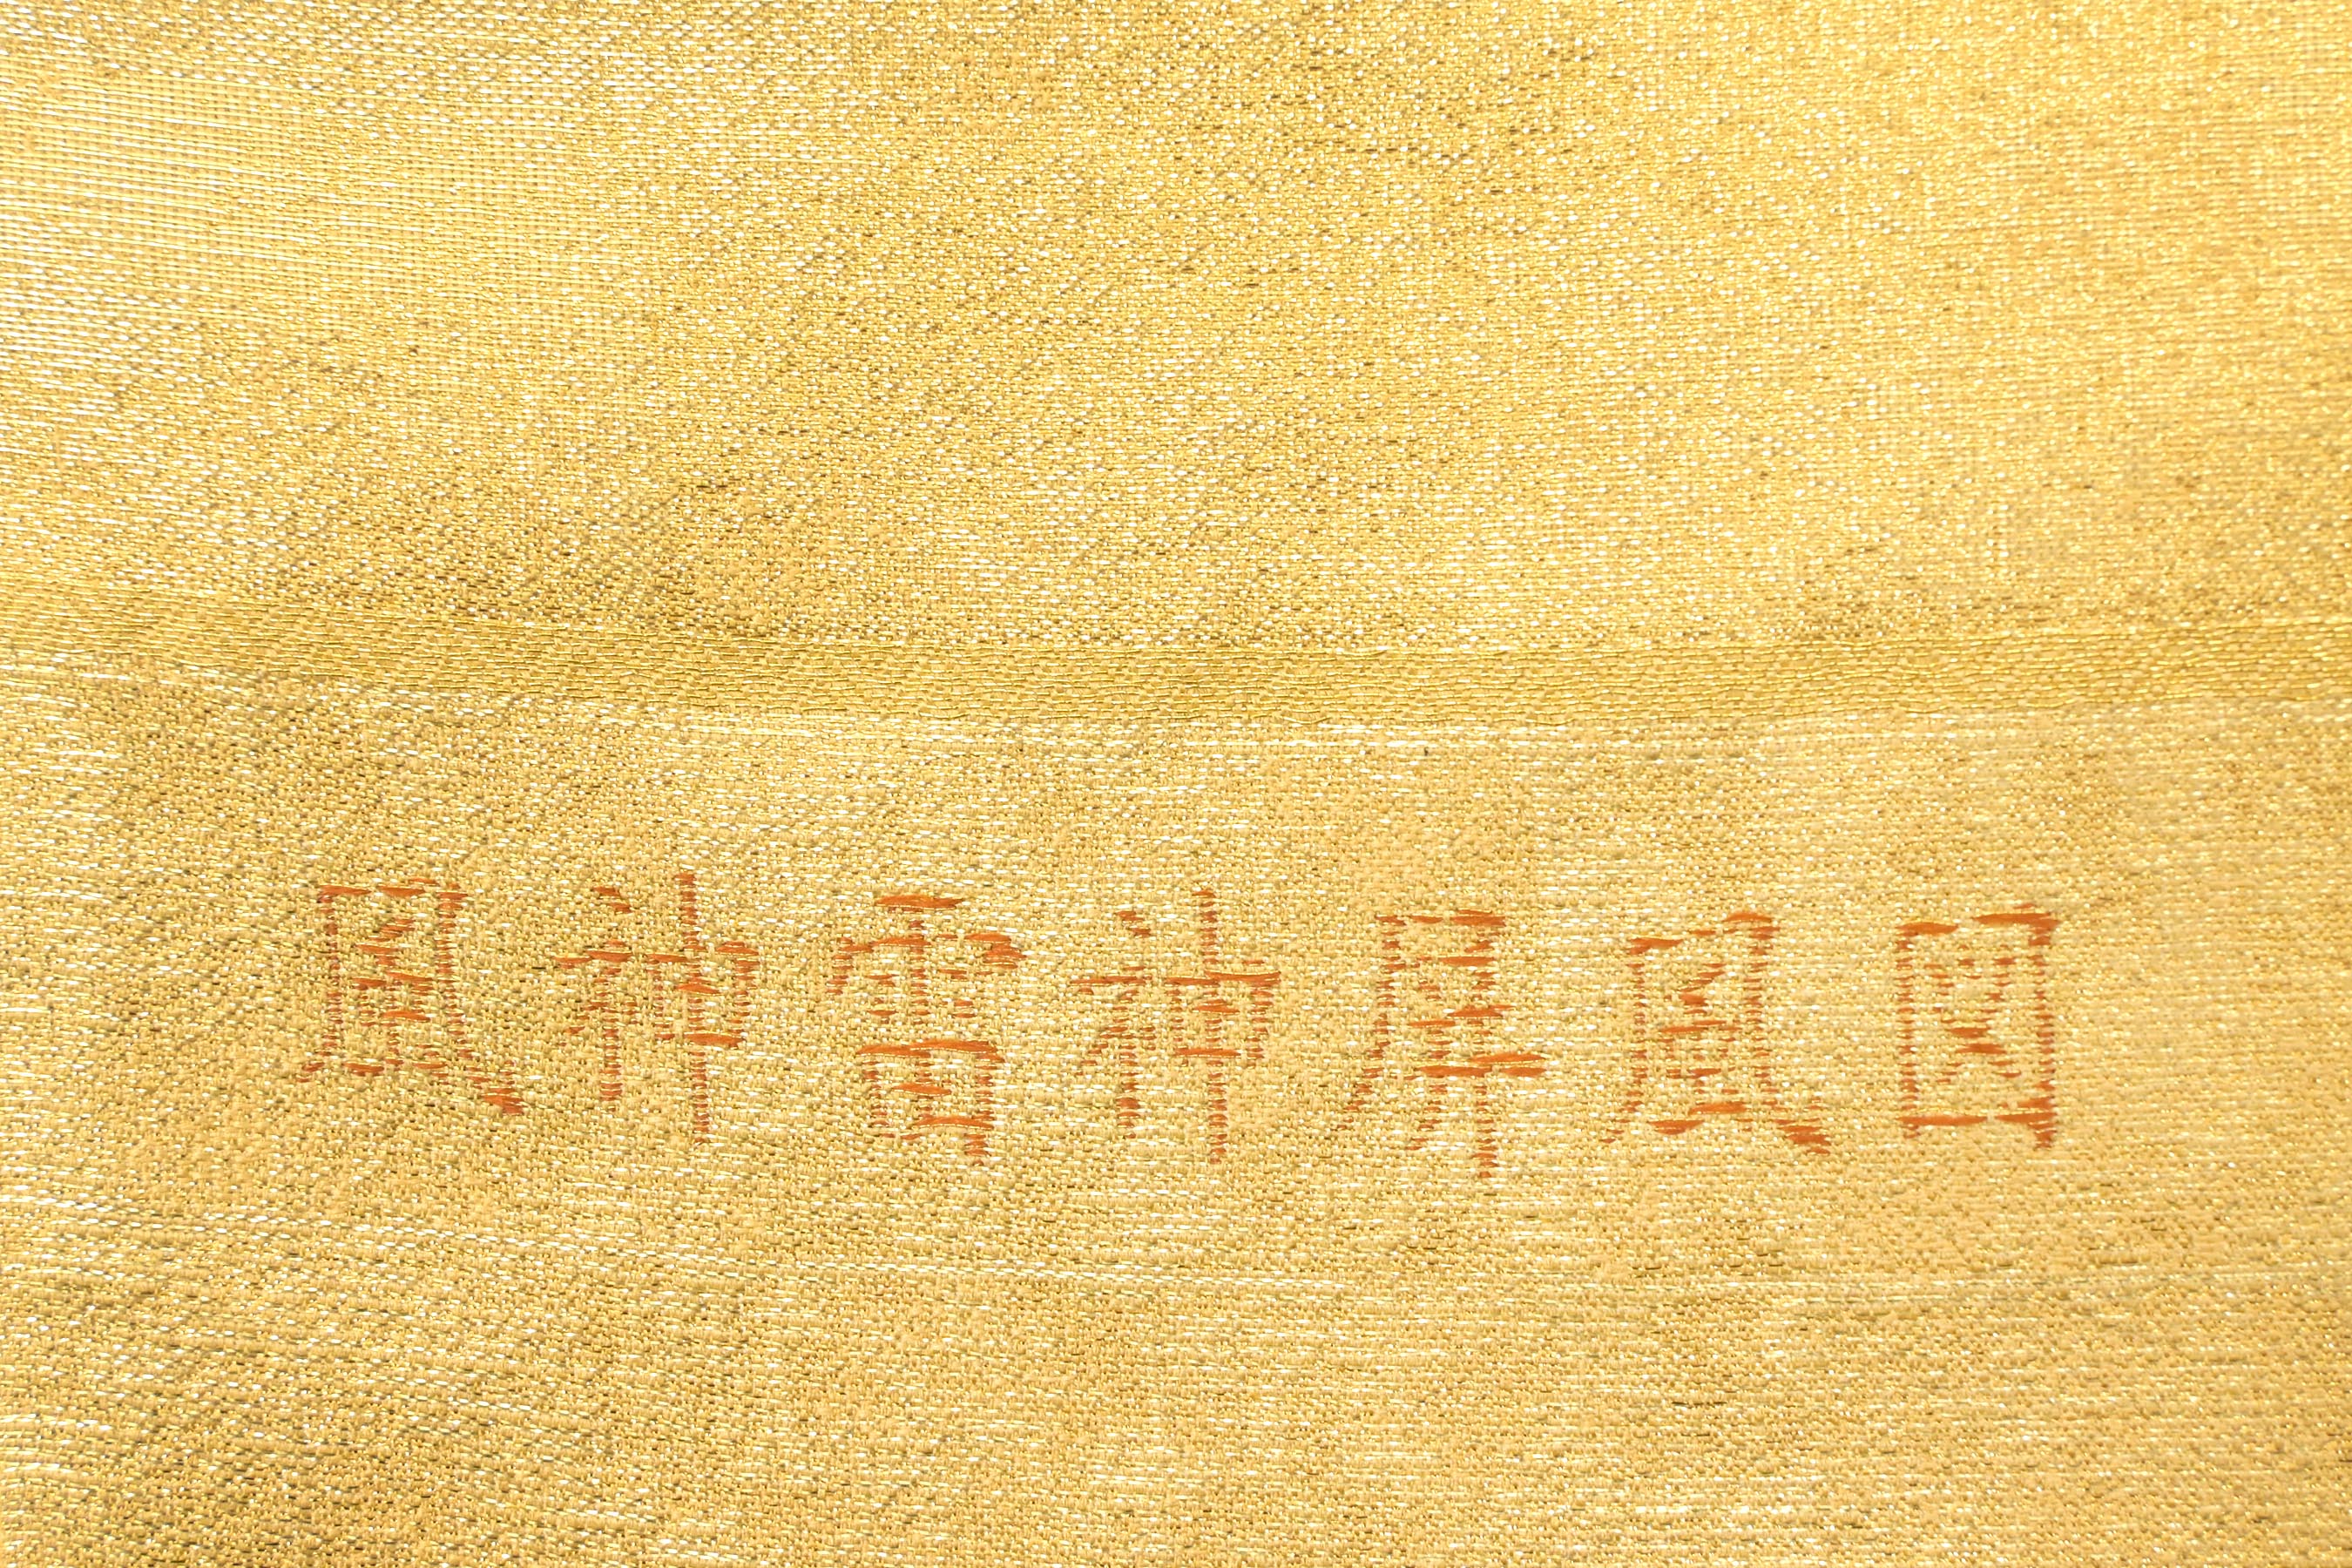 風神雷神屏風図